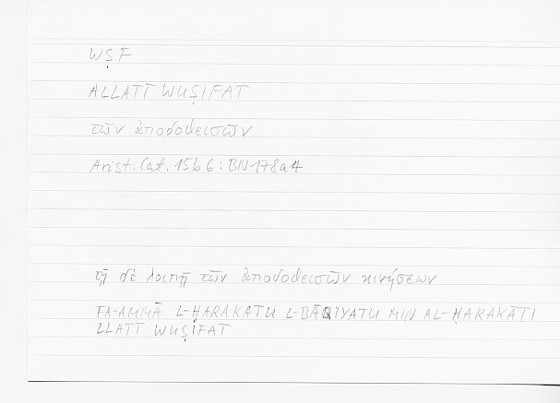 WṢF
ALLATĪ WUṢIFAT
τῶν ἀποδοθεισῶν
Arist. Cat. 15b6: BN 178a4
τῇ δὲ λοιπῇ τῶν ἀποδοθεισῶν κινήσεων
FA-AMMĀ L-ḤARAKATU L-BĀQIYATU MIN AL-ḤARAKĀTI
LLATĪ WUṢIFAT